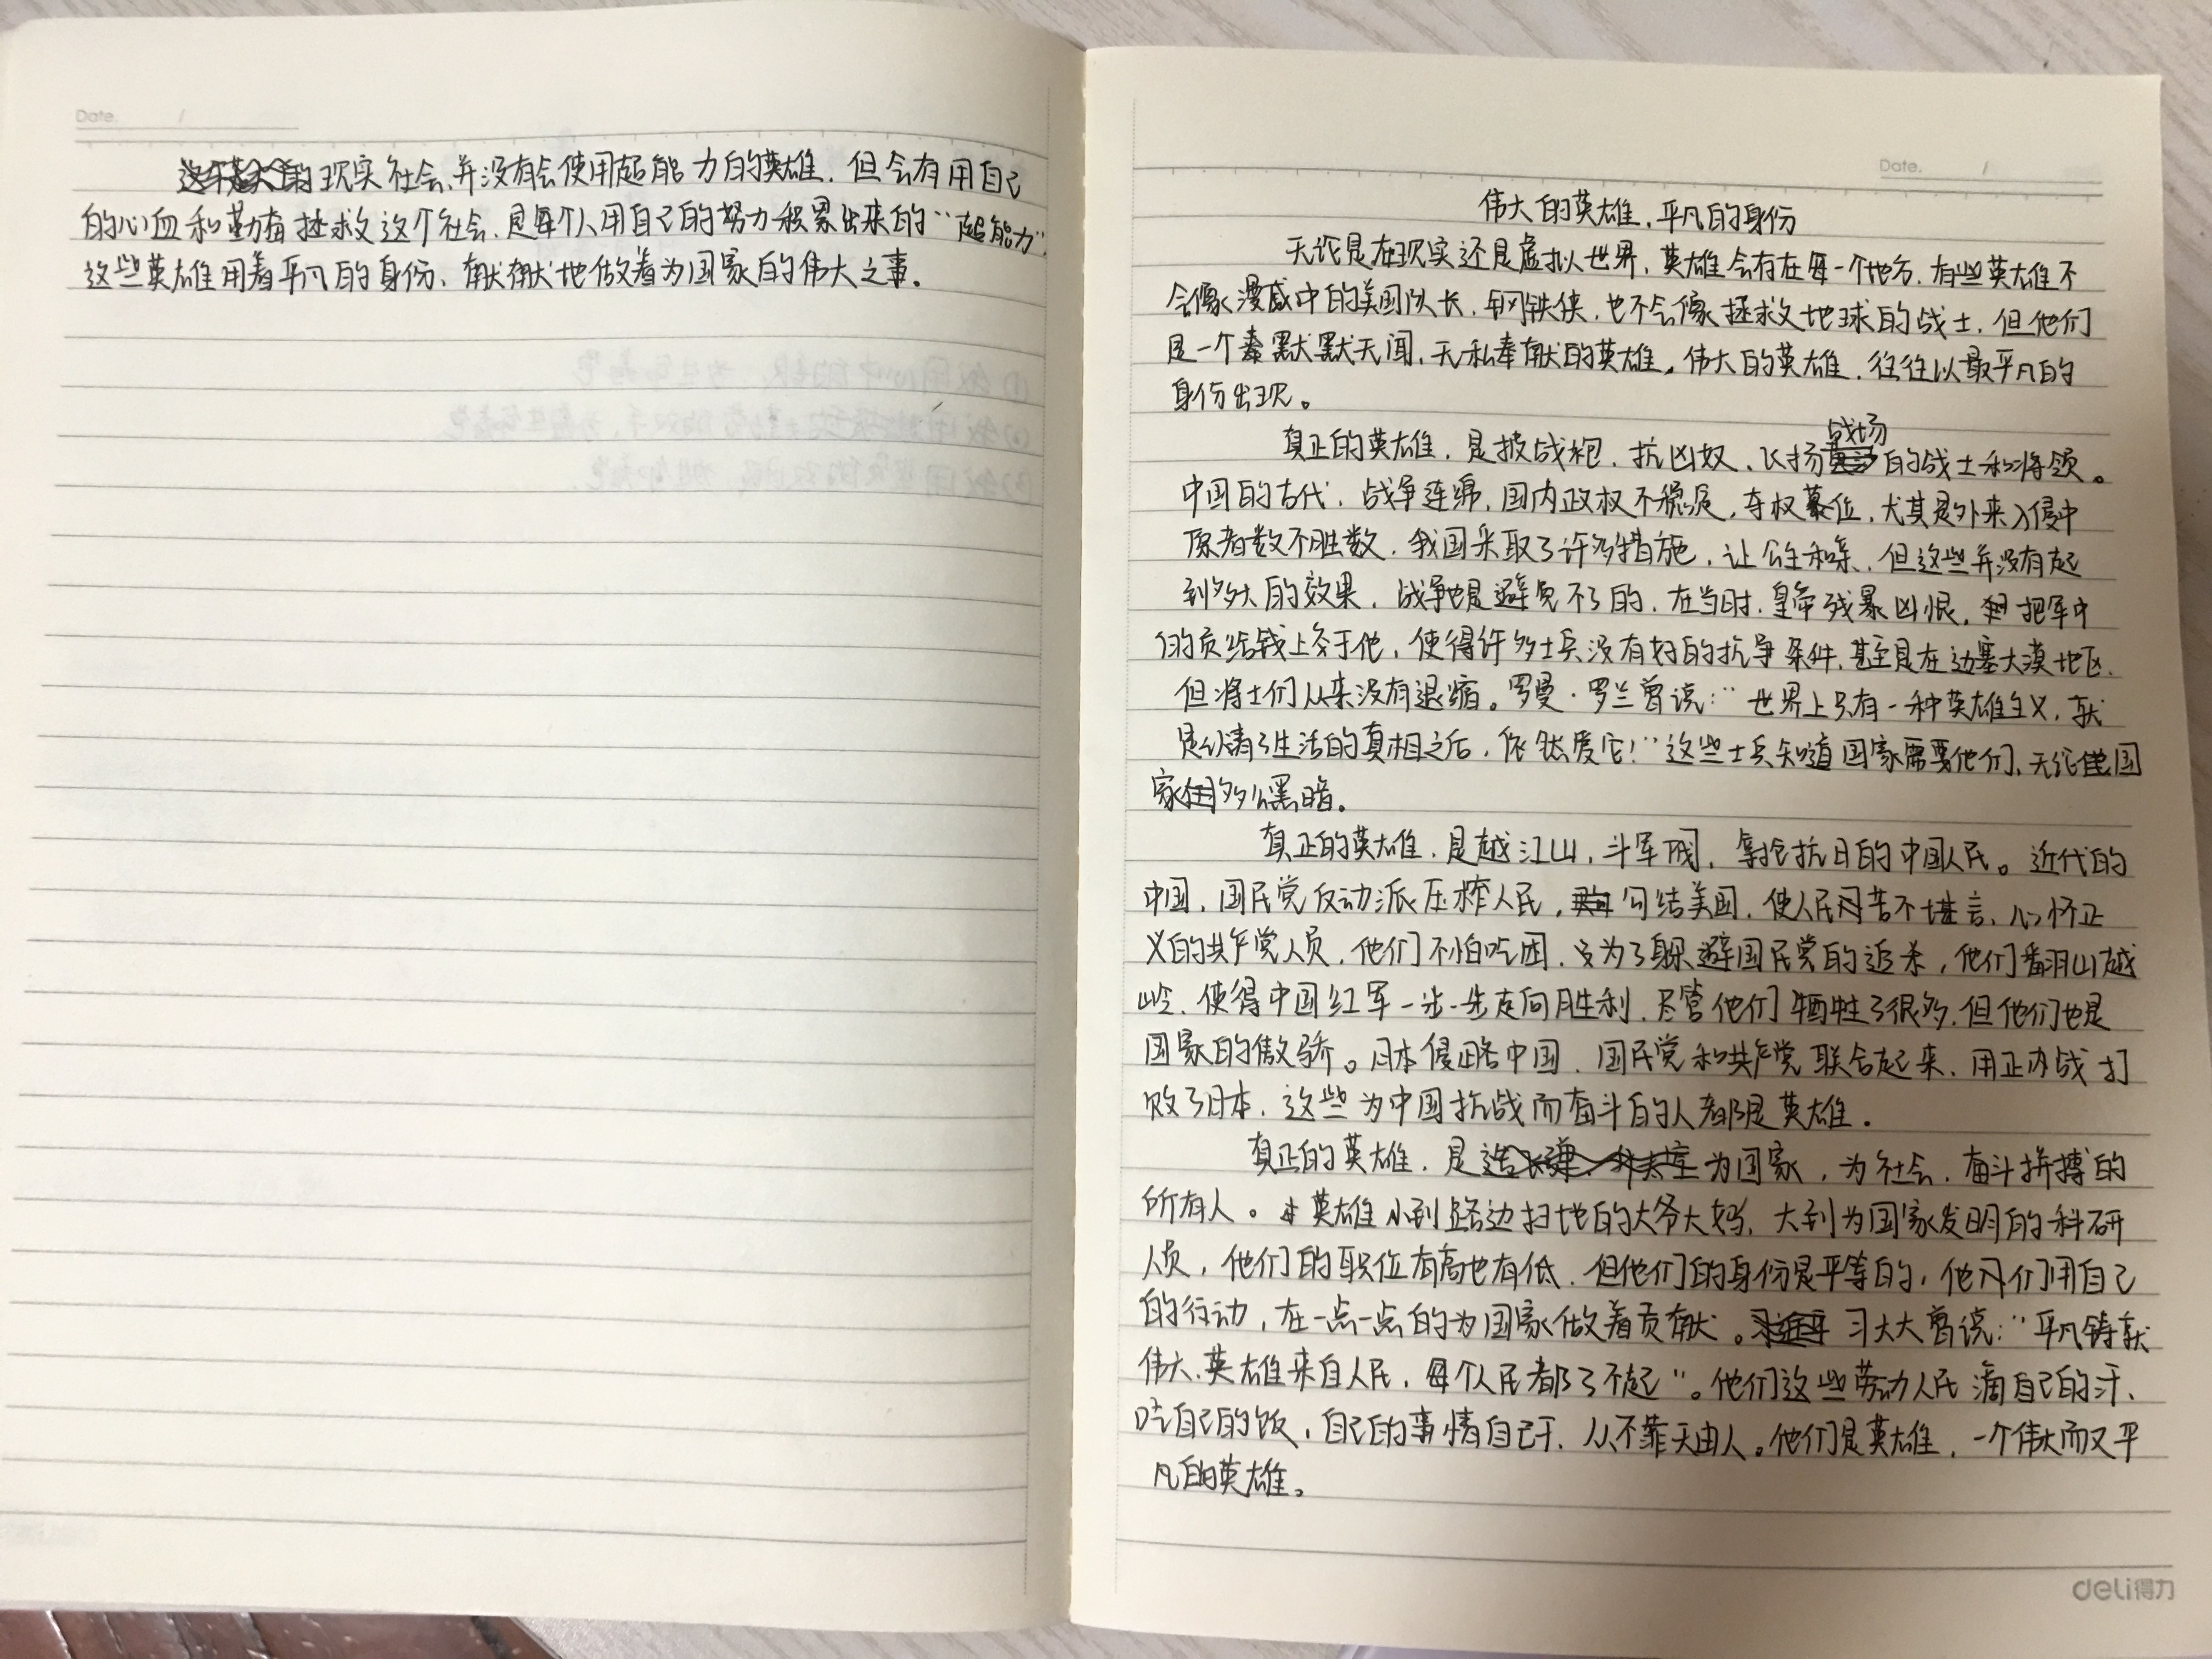 Date. /
现实社会,并没有会使用超能力的英雄,但会有用自己
的心血和勤奋拯救这个社会,是每个人用自己的努力积累出来的“超能力”,
这些英雄用着平凡的身份,默默地做着为国家的伟大之事。
Date. /
伟大的英雄,平凡的身份
无论是在现实还是虚拟世界,英雄会存在每一个地方,有些英雄不
会像漫威中的美国队长,钢铁侠,也不会像拯救地球的战士,但他们
是一个默默无闻,无私奉献的英雄。伟大的英雄,往往以最平凡的
身份出现。
真正的英雄,是披战袍,抗凶奴,飞扬战场的战士和将领。
中国的古代,战争连绵,国内政权不稳定,夺权篡位,尤其是外来入侵中
原者数不胜数,我国采取了许多措施,让公主和亲,但这些并没有起
到多大的效果,战争也是避免不了的,在当时,皇帝残暴凶恨,把军中
的贡给钱上交于他,使得许多士兵没有好的抗争条件,甚至是在边塞大漠地区,
但将士们从来没有退缩。罗曼·罗兰曾说:“世界上只有一种英雄主义,就
是认清了生活的真相之后,依然爱它!”这些士兵知道国家需要他们,无论国
家有多么黑暗。
真正的英雄,是越江山,斗军阀,拿抢抗日的中国人民。近代的
中国,国民党反动派压榨人民,勾结美国,使人民苦不堪言,心怀正
义的共产党人员,他们不怕吃困,只为了躲避国民党的追杀,他们翻山越
岭,使得中国红军一步一步走向胜利,尽管他们牺牲了很多,但他们也是
国家的傲骄。日本侵略中国,国民党和共产党联合起来,用正内战打
败了日本,这些为中国抗战而奋斗的人都是英雄。
真正的英雄,是为国家,为社会,奋斗拼搏的
所有人。英雄小到路边扫地的大爷大妈,大到为国家发明的科研
人员,他们的职位有高也有低,但他们的身份是平等的,他们用自己
的行动,在一点一点的为国家做着贡献。习大大曾说:“平凡铸就
伟大,英雄来自人民,每个人民都了不起”。他们这些劳动人民滴自己的汗,
吃自己的饭,自己的事情自己干,从不靠天由人。他们是英雄,一个伟大而又平
凡的英雄。
deli得力